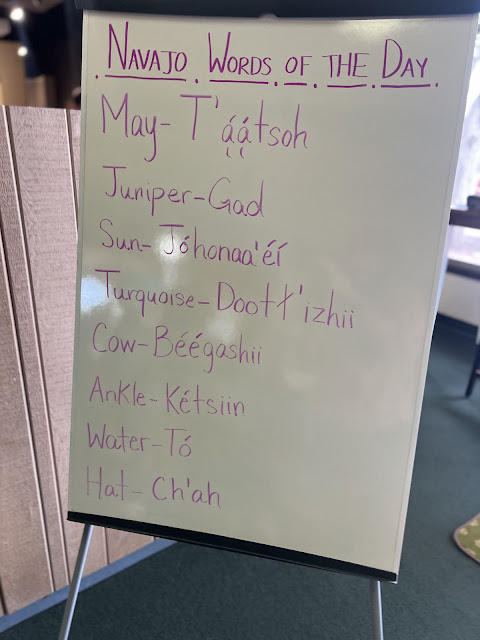 Navajo Words of the Day
May- T'ą́ą́tsoh
Juniper-Gad
Sun- Jóhonaa'éí
Turquoise-Dootł'izhii
Cow-Béégashii
Ankle-Kétsiin
Water-Tó
Hat-Ch'ah